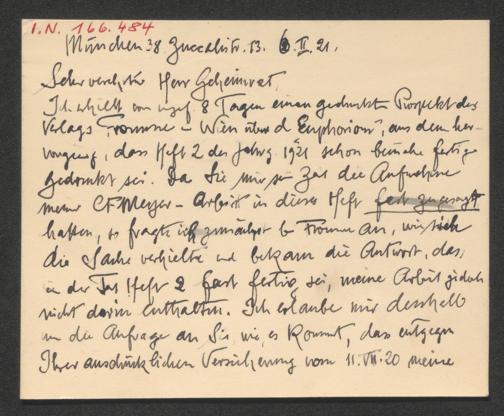 I.N. 166.484
München 38 Zuccalistr. 13. 6. II. 21.
Sehr verehrter Herr Geheimrat,
Ich erhielt vor ungef. 8 Tagen einen gedruckten Prospekt des
Verlags Fromme-Wien über d „Euphorion“, aus dem her-
vorgieng, dass Heft 2 des Jahrg. 1921 schon beinahe fertig
gedruckt sei. Da Sie mir sr. Zeit die Aufnahme
meiner CFMeyer-Arbeit in dieses Heft fest zugesagt
hatten, so fragte ich zunächst b Fromme an, wie sich
die Sache verhielte und bekam die Antwort, dass
in der Tat Heft 2 fast fertig sei, meine Arbeit jedoch
nicht darin enthalten. Ich erlaube mir desshalb
nun die Anfrage an Sie, wie es kommt, dass entgegen
Ihrer ausdrücklichen Versicherung vom 11. VII. 20 meine